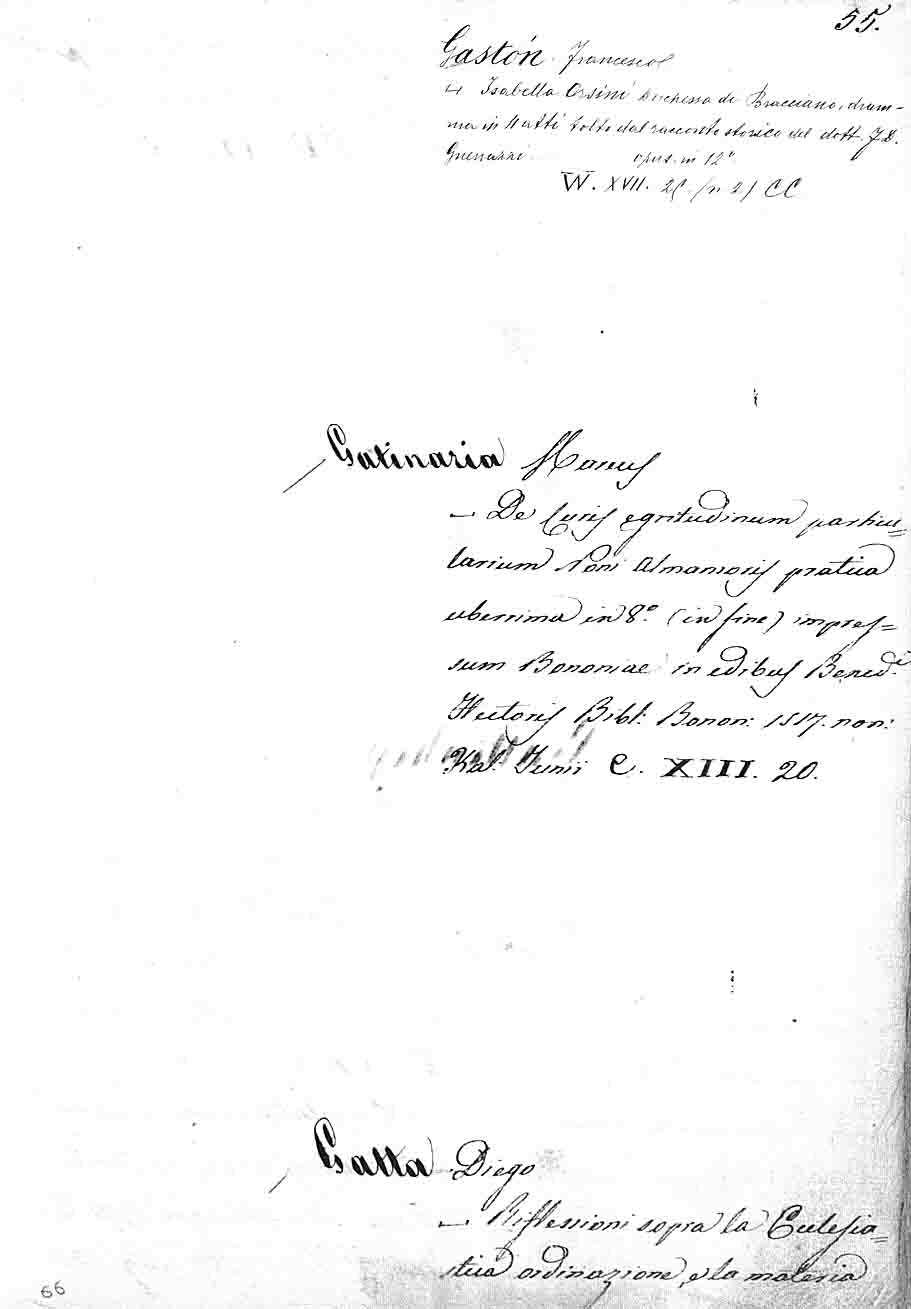 55.
Gastón Francesco
— Isabella Orsini Duchessa di Bracciano, dram-
ma in 4 atti tolto dal racconto storico del dott. F. D.
Guerrazzi opus. in 12°
W. XVII. 2C (n 2) CC
Gatinaria Marcus
— De Curis egritudinum particu=
larium Noni Almansoris pratica
uberrima in 8.° (in fine) impres=
sum Bononiae in edibus Bened.i
Hectoris Bibl: Bonon: 1517. non:
Kal. Junii C. XIII. 20.
Gatta Diego
— Riflessioni sopra la Ecclesia=
stica ordinazione, e la materia
66